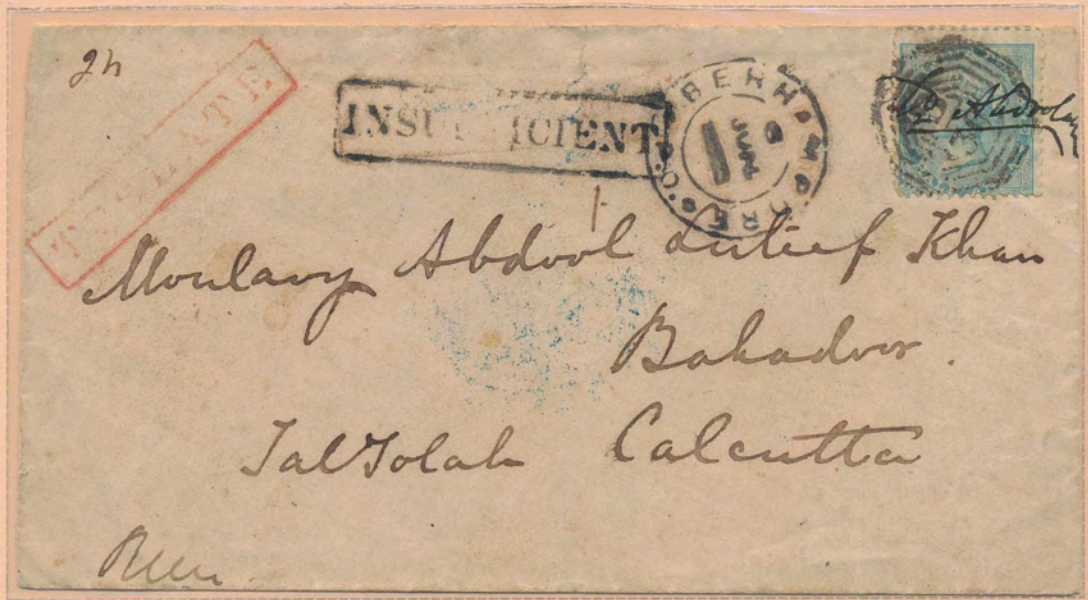 TOO LATE
INSUFFICIENT
BERHAMPORE
JUN
Abdool
Moulavy Abdool Luteef Khan
Bahadoor.
TalTolah Calcutta